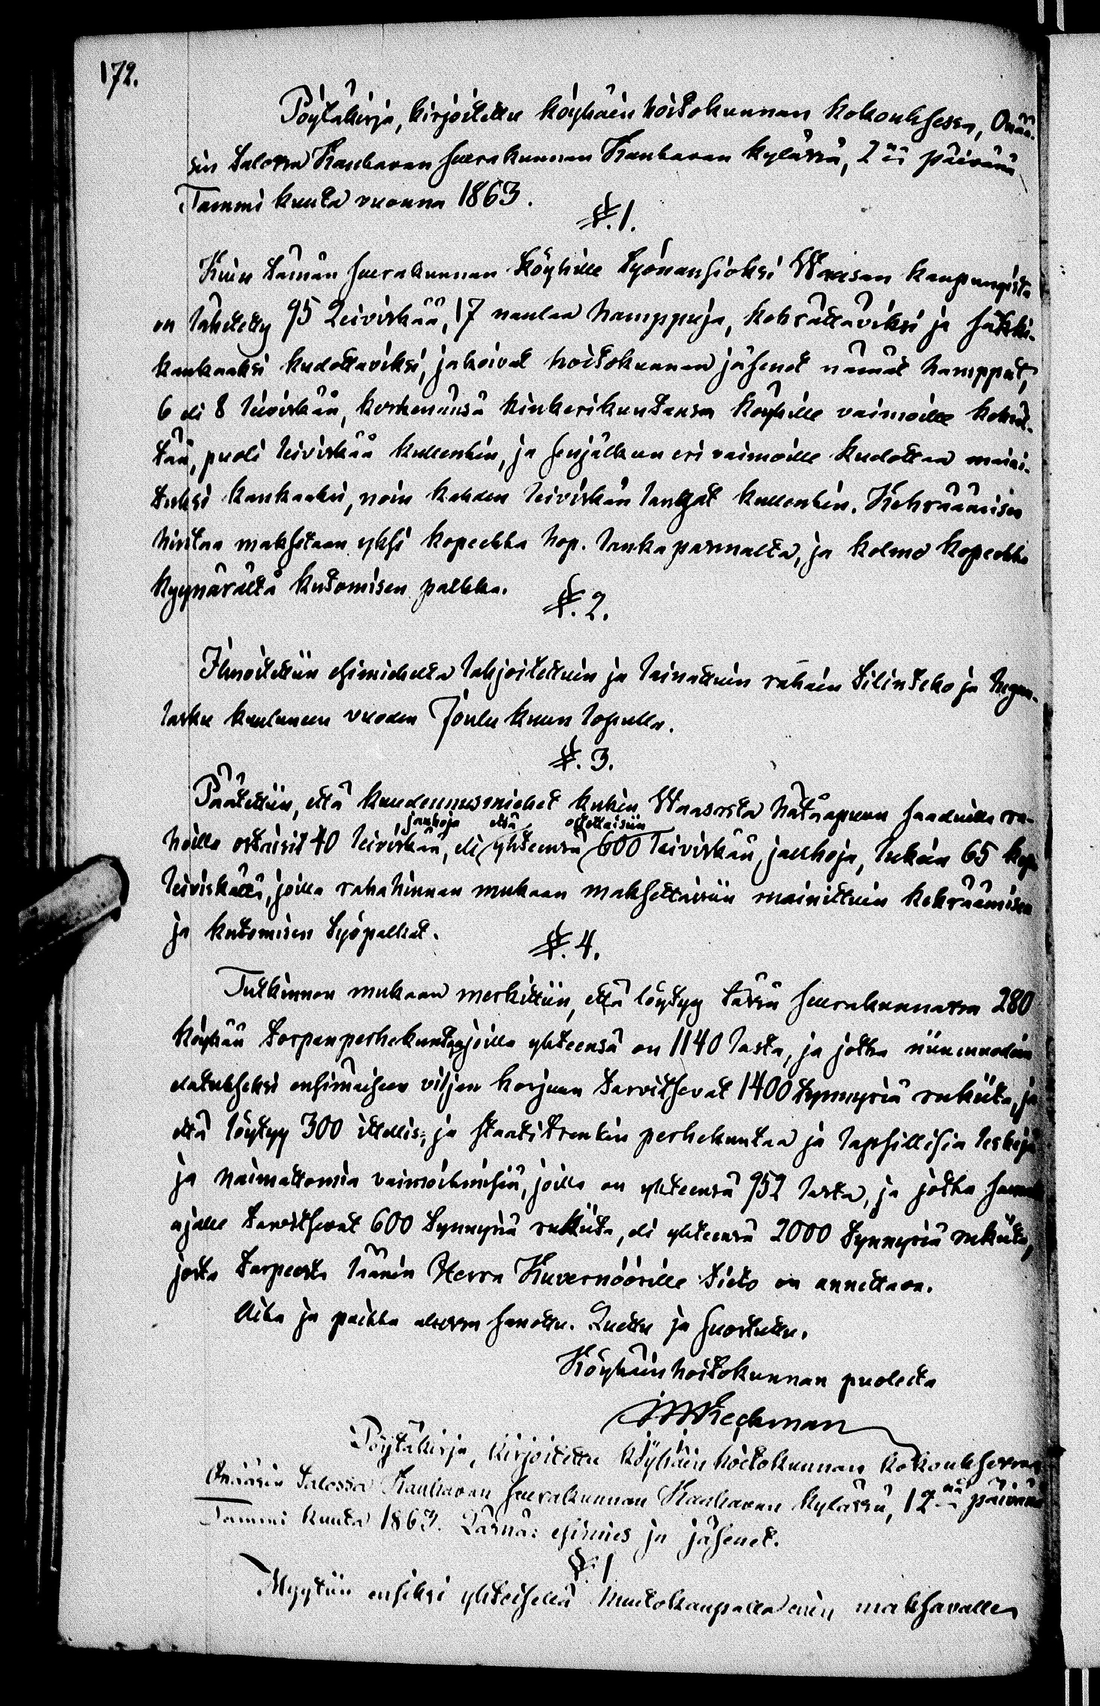 172.
Pöytäkirja, kirjoitettu köyhäin hoitokunnan kokouksessa, Onää-
sin talossa Kauhavan seurakunnan Kauhavan kylässä, 2:na päivänä
Tammi kuuta vuonna 1863.
§. 1.
Kuin tämän seurakunnan köyhille työnansioksi Waasan kaupungista
on lähetetty 95 Leiviskää, 17 naulaa hamppuja, kehrättäviksi ja säkki-
kankaaksi kudottaviksi, jakoivat hoitokunnan jäsenet nämät hamput,
6 eli 8 leiviskää, kerkenänsä kinkerikuntansa köyhille vaimoille kehrät-
tää, puoli leiviskää kullenkin, ja senjälkeen eri vaimoille kudottaa maini-
tuksi kankaaksi, noin kahden leiviskän langat kullenkin. Kehräämisen
hintaa maksetaan yksi kopeekka hop. lankapasmalta, ja kolme kopeekka
kyynärältä kutomisen palkka.
§. 2.
Ilmoitettiin esimieheltä lahjoitettuin ja lainattuin rahain tilinteko ja lugun-
lasku kuluneen vuoden Joulu kuun lopulla.
§. 3.
Päätettiin, että kuudennusmiehet kukin Waasasta hätäapuun saaduilla ra-
jauhoja että ostettaisiin
hoilla ostaisit 40 leiviskää, eli yhteensä 600 leiviskää jauhoja, lukein 65 kop.
leiviskältä, joilla rahahinnan mukaan maksettaisiin mainittuin kehräämisen
ja kutomisen työpalkat.
§. 4.
Tutkinnon mukaan merkittiin, että löytyy tässä seurakunnassa 280
köyhän torpanperhekuntaa, joilla yhteensä on 1140 lasta, ja jotka niin muodoin
elatukseksi ensimäiseen viljan korjuun tarvitsevat 1400 tynnyriä rukiita, ja
että löytyy 300 itellis- ja staatitrenkin perhekuntaa ja lapsillisia leskejä
ja naimattomia vaimoihmisiä, joilla on yhteensä 952 lasta, ja jotka samalle
ajalle tarvitsevat 600 tynnyriä rukiita, eli yhteensä 2000 tynnyriä rukiita,
josta tarpeesta läänin Herra Kuvernöörille tieto on annettava.
Aika ja paikka alussa sanottu. Luettu ja suostuttu.
Köyhäinhoitokunnan puolesta
Pöytäkirja, kirjoitettu köyhäin hoitokunnan kokouksessa
Onääsin talossa Kauhavan seurakunnan Kauhavan kylässä, 12:na päivänä
Tammi kuuta 1863. Läsnä: esimies ja jäsenet.
§. 1
Myytiin ensiksi yhteisellä huutokaupalla enin maksavalle